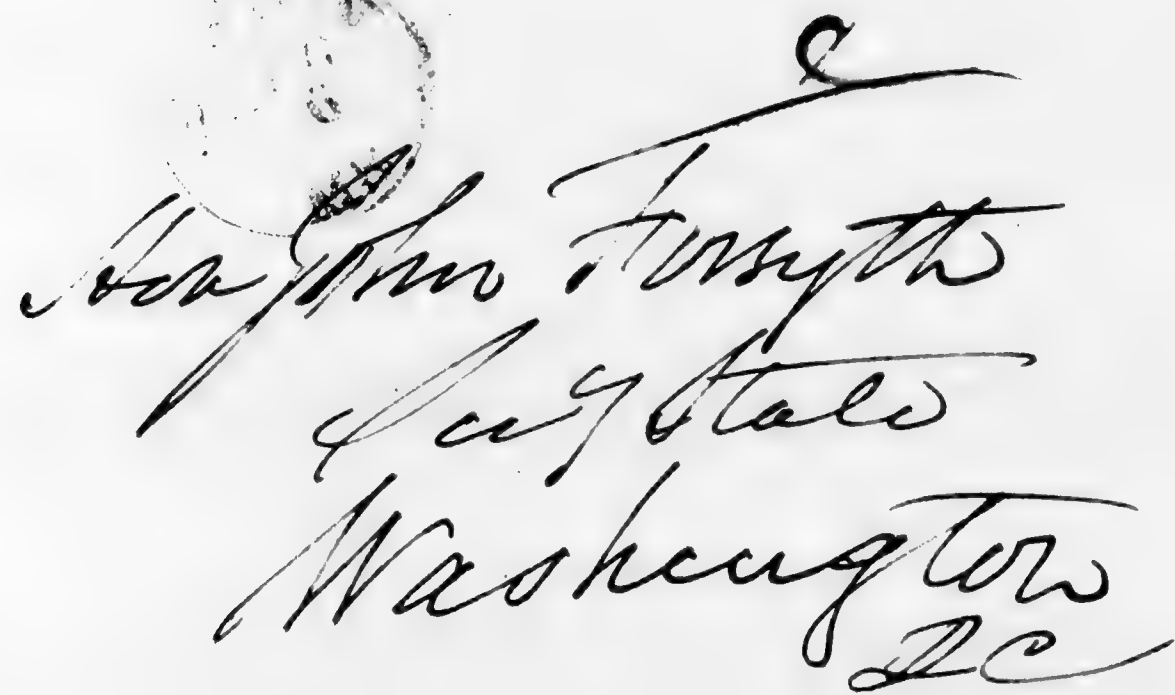 Hon John Forsyth
Secy State
Washington
DC